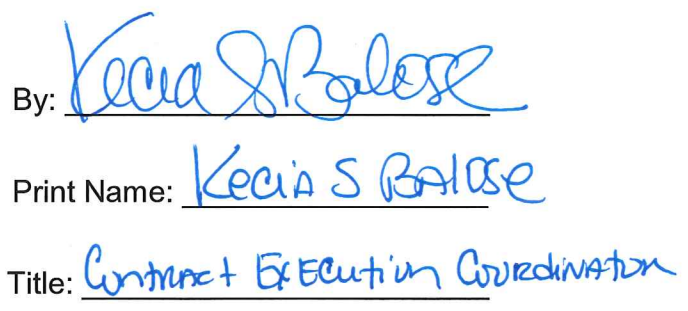 By: Kecia S Balose
Print Name: Kecia S BAlose
Title: Contract Execution Coordinator